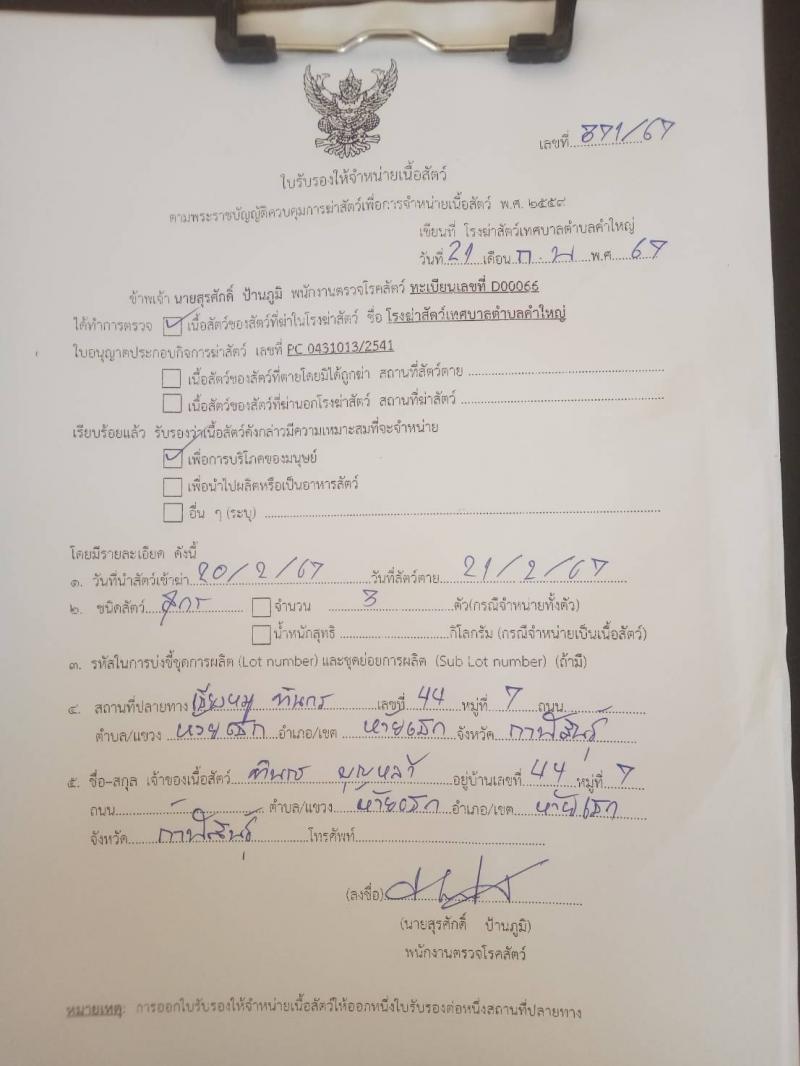 เลขที่ 371/67
ใบรับรองให้จำหน่ายเนื้อสัตว์
ตามพระราชบัญญัติควบคุมการฆ่าสัตว์เพื่อการจำหน่ายเนื้อสัตว์ พ.ศ. ๒๕๕๙
เขียนที่ โรงฆ่าสัตว์เทศบาลตำบลคำใหญ่
วันที่ 21 เดือน ก.พ พ.ศ. 67
ข้าพเจ้า นายสุรศักดิ์ ป้านภูมิ พนักงานตรวจโรคสัตว์ ทะเบียนเลขที่ D00066
ได้ทำการตรวจ เนื้อสัตว์ของสัตว์ที่ฆ่าในโรงฆ่าสัตว์ ชื่อ โรงฆ่าสัตว์เทศบาลตำบลคำใหญ่
ใบอนุญาตประกอบกิจการฆ่าสัตว์ เลขที่ PC 0431013/2541
เนื้อสัตว์ของสัตว์ที่ตายโดยมิได้ถูกฆ่า สถานที่สัตว์ตาย
เนื้อสัตว์ของสัตว์ที่ฆ่านอกโรงฆ่าสัตว์ สถานที่ฆ่าสัตว์
เรียบร้อยแล้ว รับรองว่าเนื้อสัตว์ดังกล่าวมีความเหมาะสมที่จะจำหน่าย
เพื่อการบริโภคของมนุษย์
เพื่อนำไปผลิตหรือเป็นอาหารสัตว์
อื่น ๆ (ระบุ)
โดยมีรายละเอียด ดังนี้
๑. วันที่นำสัตว์เข้าฆ่า 20/2/67 วันที่สัตว์ตาย 21/2/67
๒. ชนิดสัตว์ สุกร จำนวน 3 ตัว(กรณีจำหน่ายทั้งตัว)
น้ำหนักสุทธิ กิโลกรัม (กรณีจำหน่ายเป็นเนื้อสัตว์)
๓. รหัสในการบ่งชี้ชุดการผลิต (Lot number) และชุดย่อยการผลิต (Sub Lot number) (ถ้ามี)
๔. สถานที่ปลายทาง เขียงหมู เลขที่ 44 หมู่ที่ 7 ถนน
ตำบล/แขวง ห้วยเม็ก อำเภอ/เขต ห้วยเม็ก จังหวัด กาฬสินธุ์
๕. ชื่อ-สกุล เจ้าของเนื้อสัตว์ บุญหล้า อยู่บ้านเลขที่ 44 หมู่ที่ 7
ถนน - ตำบล/แขวง ห้วยเม็ก อำเภอ/เขต ห้วยเม็ก
จังหวัด กาฬสินธุ์ โทรศัพท์
(ลงชื่อ)
(นายสุรศักดิ์ ป้านภูมิ)
พนักงานตรวจโรคสัตว์
หมายเหตุ: การออกใบรับรองให้จำหน่ายเนื้อสัตว์ให้ออกหนึ่งใบรับรองต่อหนึ่งสถานที่ปลายทาง